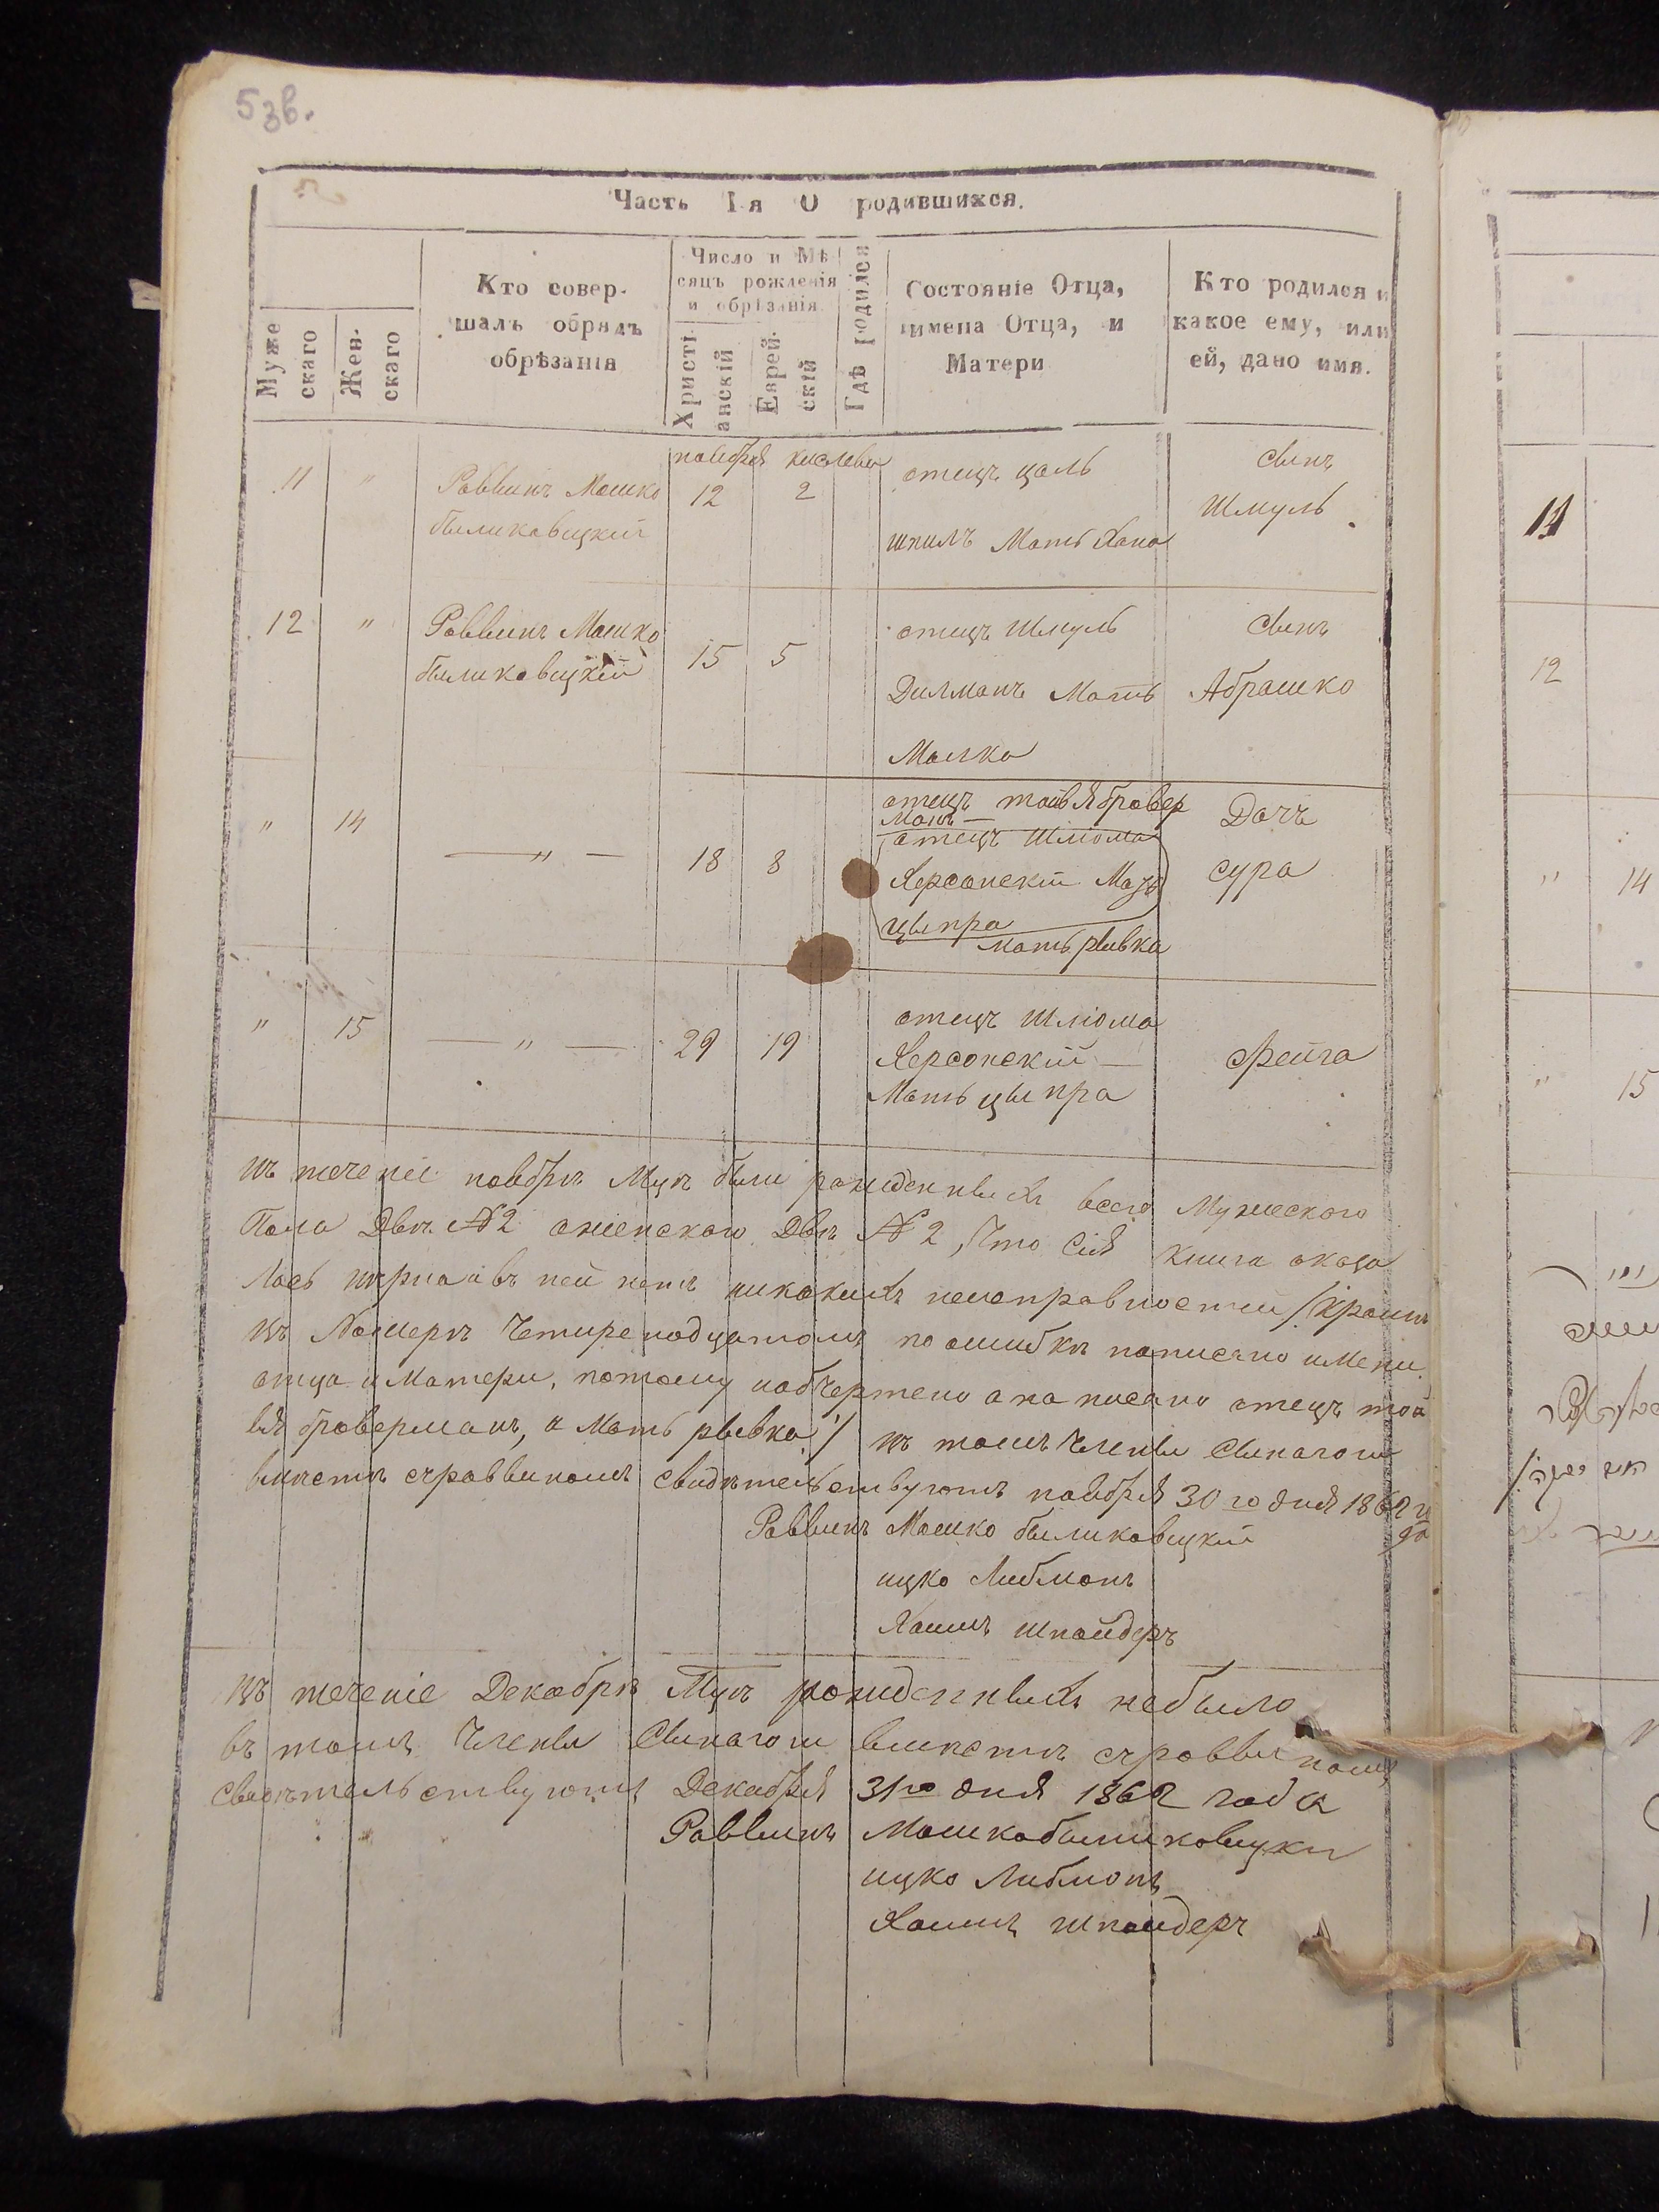 53в.
Часть I-я О родившихся.
Муже
скаго
Жен-
скаго
Кто совер-
шалъ обрядъ
обрѣзанія
Число и Мѣ
сяцъ рожденія
и обрѣзанія
Христі-
анскій
Еврей-
скій
Гдѣ родился
Состояніе Отца,
имена Отца, и
Матери
Кто родился и
какое ему, или
ей, дано имя.
ноибря кислева
11 " Раввинъ Мошко 12 2 отецъ цаль сынъ
быликовицкий шпилъ Мать Хана Шмуль
12 " Раввинъ Мошко 15 5 отецъ Шмуль сынъ
быликовицкий Дилманъ Мать Абрашко
Малка
" 14 — " — 18 8 отецъ тоивя бровер Дочъ
Манъ —
отецъ Шліома
Херсонскій Мать сура
цыпра
Мать рывка
" 15 — " — 29 19 отецъ Шліома
Херсонскій — Фейга
Мать цыпра
въ теченіе ноября Мцъ были рожденныхъ всего Мужескаго
Пола Два №2 женскаго Два №2, Что Сія книга оказа
лась вѣрна и въ ней нетъ никакихъ неисправностей /: кромѣ
въ Номеръ Четиренадцатомъ по ошибкѣ написано имени
отца и Матери, потому надчертено а написано отецъ тои
вя броверманъ, а Мать рывка :/ въ томъ Члены Сынагоги
вместѣ съраввиномъ свидѣтельствуютъ ноибря 30го дня 1862 го
да
Раввинъ Мошко быликовицкий
ицко Либманъ
Хаимъ шпайдеръ
въ теченіе Декабрѣ Мцъ рожденныхъ небыло
въ томъ Члены Сынагоги вместѣ сърoввиномъ
свидѣтельствуютъ Декабря 31го дня 1862 года
Раввинъ Мошко быликовицки
ицко Либмонъ
Хаимъ шпайдеръ
11
12
" 14
" 15